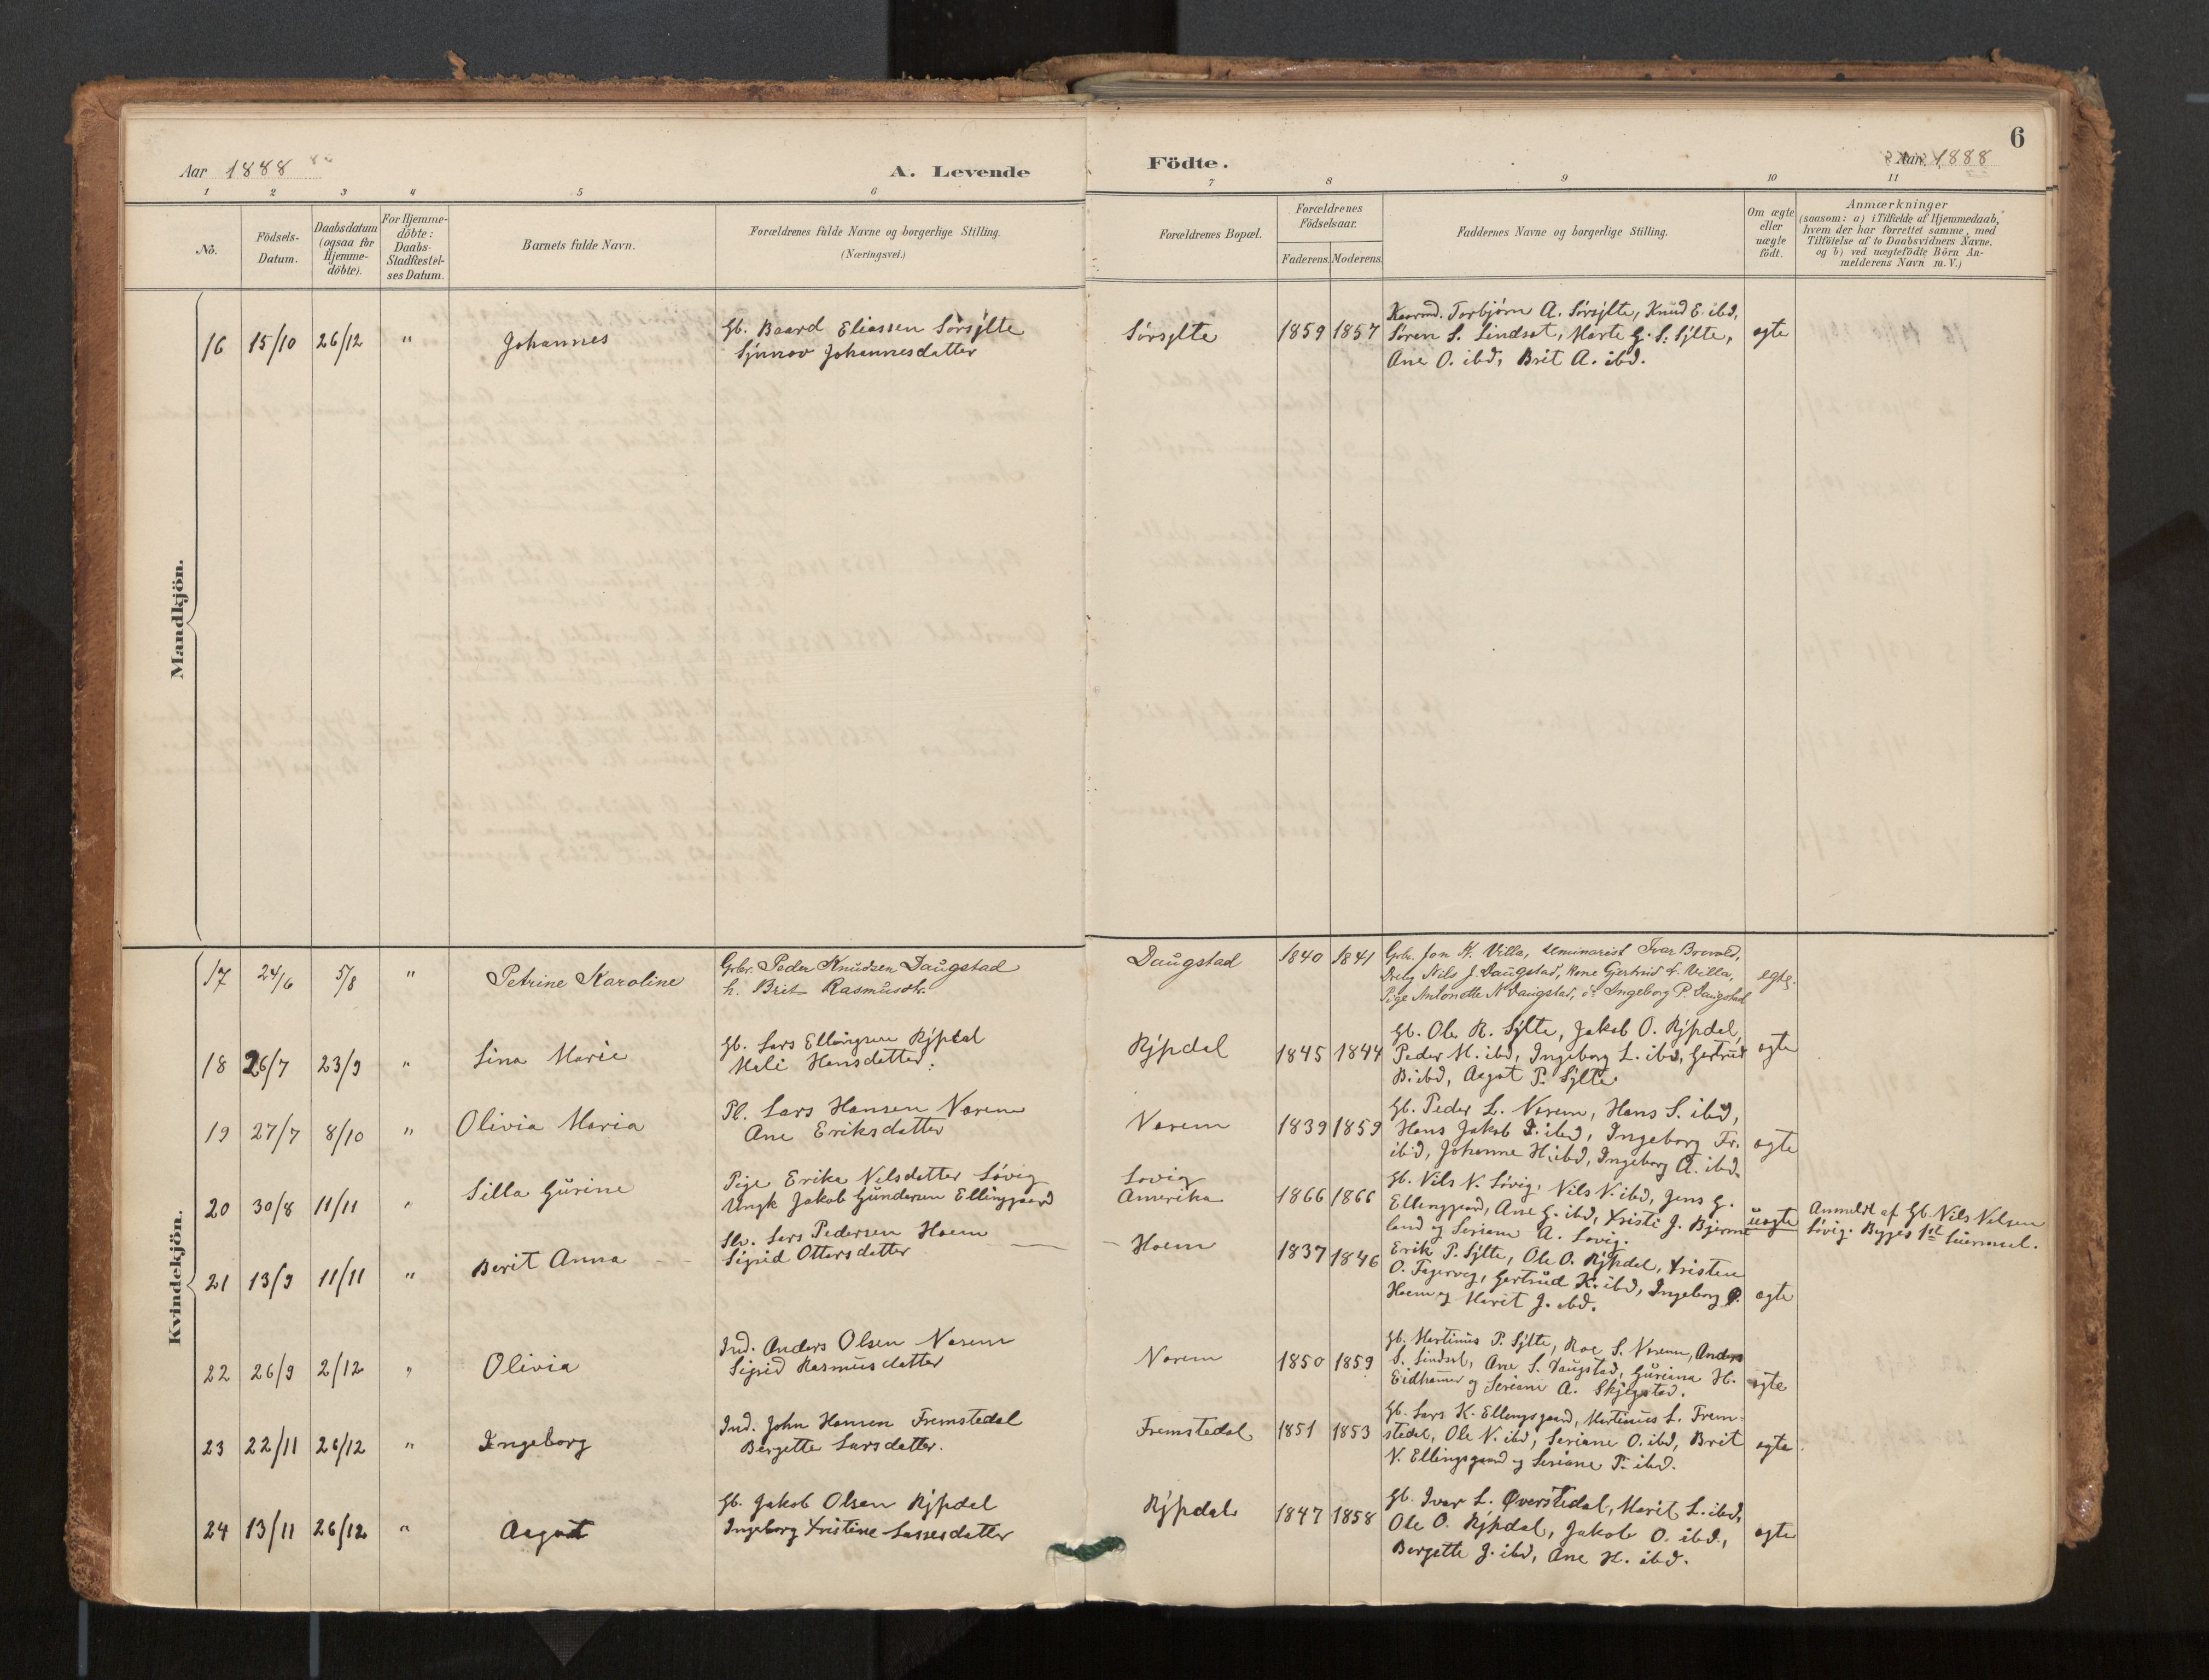 6
Aar 1888
A. Levende
Födte.
Aar 1888
1 2 3 4 5 6 7 8 9 10 11
No.
Födsels-
Datum.
Daabsdatum
(ogsaa for
Hjemme-
döbte).
For Hjemme-
döbte:
Daabs-
Stadfæstel-
ses Datum.
Barnets fulde Navn.
Forældrenes fulde Navne og borgerlige Stilling.
(Næringsvei.)
Forældrenes Bopæl.
Forældrenes
Födselsaar.
Faderens. Moderens.
Faddernes Navne og borgerlige Stilling.
Om ægte
eller
uægte
födt.
Anmærkninger
(saasom: a) i Tilfælde af Hjemmedaab,
hvem der har forrettet samme, med
Tilföielse af to Daabsvidners Navne.
og b) ved uægtefödte Börn An-
melderens Navn m. V.)
Mandkjön.
16 15/10 26/12 " Johannes
Gb. Baard Eliassen Sørsylte
Synnøv Johannesdatter
Sørsylte 1859 1857
Torbjørn A. Sørsylte, Knud E. ibd,
Søren S. Lindset, Marte G. S. Sylte,
Ane O. ibd, Brit A. ibd.
ægte
Kvindekjön.
17 24/6 5/8 " Petrine Karoline
Grbr. Peder Knudsen Daugstad
h. Brit Rasmusdtr.
Daugstad 1840 1841
Grbr. Jon K. Villa, Seminarist Ivar Brovold,
Nils J. Daugstad, Kone Gjertrud L. Villa,
Pige Antonette N Daugstad, do Ingeborg P. Daugstad
egte.
18 26/7 23/9 " Lina Marie
Gb. Lars Ellingsen Rypdal
Mali Hansdatter.
Rypdal 1845 1844
Gb. Ole R. Sylte, Jakob O. Rypdal,
Peder M. ibd, Ingeborg L. ibd, Gertrud
B. ibd, Aagot P. Sylte.
ægte
19 27/7 8/10 " Olivia Maria
Pl. Lars Hansen Norem
Ane Eriksdatter
Norem 1839 1859
Gb. Peder L. Norem, Hans S. ibd,
Hans Jakob I. ibd, Ingeborg Fr.
ibd, Johanne H. ibd, Ingeborg A. ibd.
ægte
20 30/8 11/11 " Silla Gurine
Pige Erika Nilsdatter Løvig
Ungk Jakob Gundersen Ellingsgaard
Lovig
Amerika 1866 1866
Gb. Nils N. Løvig, Nils N. ibd, Jens G.
Ellingsgaard, Ane G. ibd, Kristi J. Bjerme
land og Seriane A. Lovig.
uægte
Anmeldt af Gb. Nils Nilsen
Løvig. Begges 1st Leiermaal.
21 13/9 11/11 " Berit Anna
Slv. Lars Pedersen Hoem
Sigrid Ottersdatter
Hoem 1837 1846
Erik P. Sylte, Ole O. Rypdal, Kristen
O. Fagervig, Gertrud K. ibd, Ingeborg P.
Hoem og Marit J. ibd.
ægte
22 26/9 2/12 " Olivia
Ind. Anders Olsen Norem
Sigrid Rasmusdatter
Norem 1850 1859
Gb. Martinus P. Sylte, Roe S. Norem, Anders
S. Lindset, Ane S. Daugstad, Guriana H.
Eidhammer og Seriane A. Skjegstad.
ægte
23 22/11 26/12 " Ingeborg
Ind. John Hansen Fremstedal
Bergette Larsdatter.
Fremstedal 1851 1853
Gb. Lars K. Ellingsgaard, Martinus L. Frem-
stedal, Ole N. ibd, Seriane O. ibd, Brit
N. Ellingsgaard og Seriane P. ibd.
ægte
24 13/11 26/12 " Aagot
Gb. Jakob Olsen Rypdal
Ingeborg Kristine Lassesdatter
Rypdal 1847 1858
Gb. Ivar L. Øverstedal, Marit L. ibd,
Ole O. Rypdal, Jakob O. ibd,
Bergette J. ibd, Ane H. ibd.
ægte